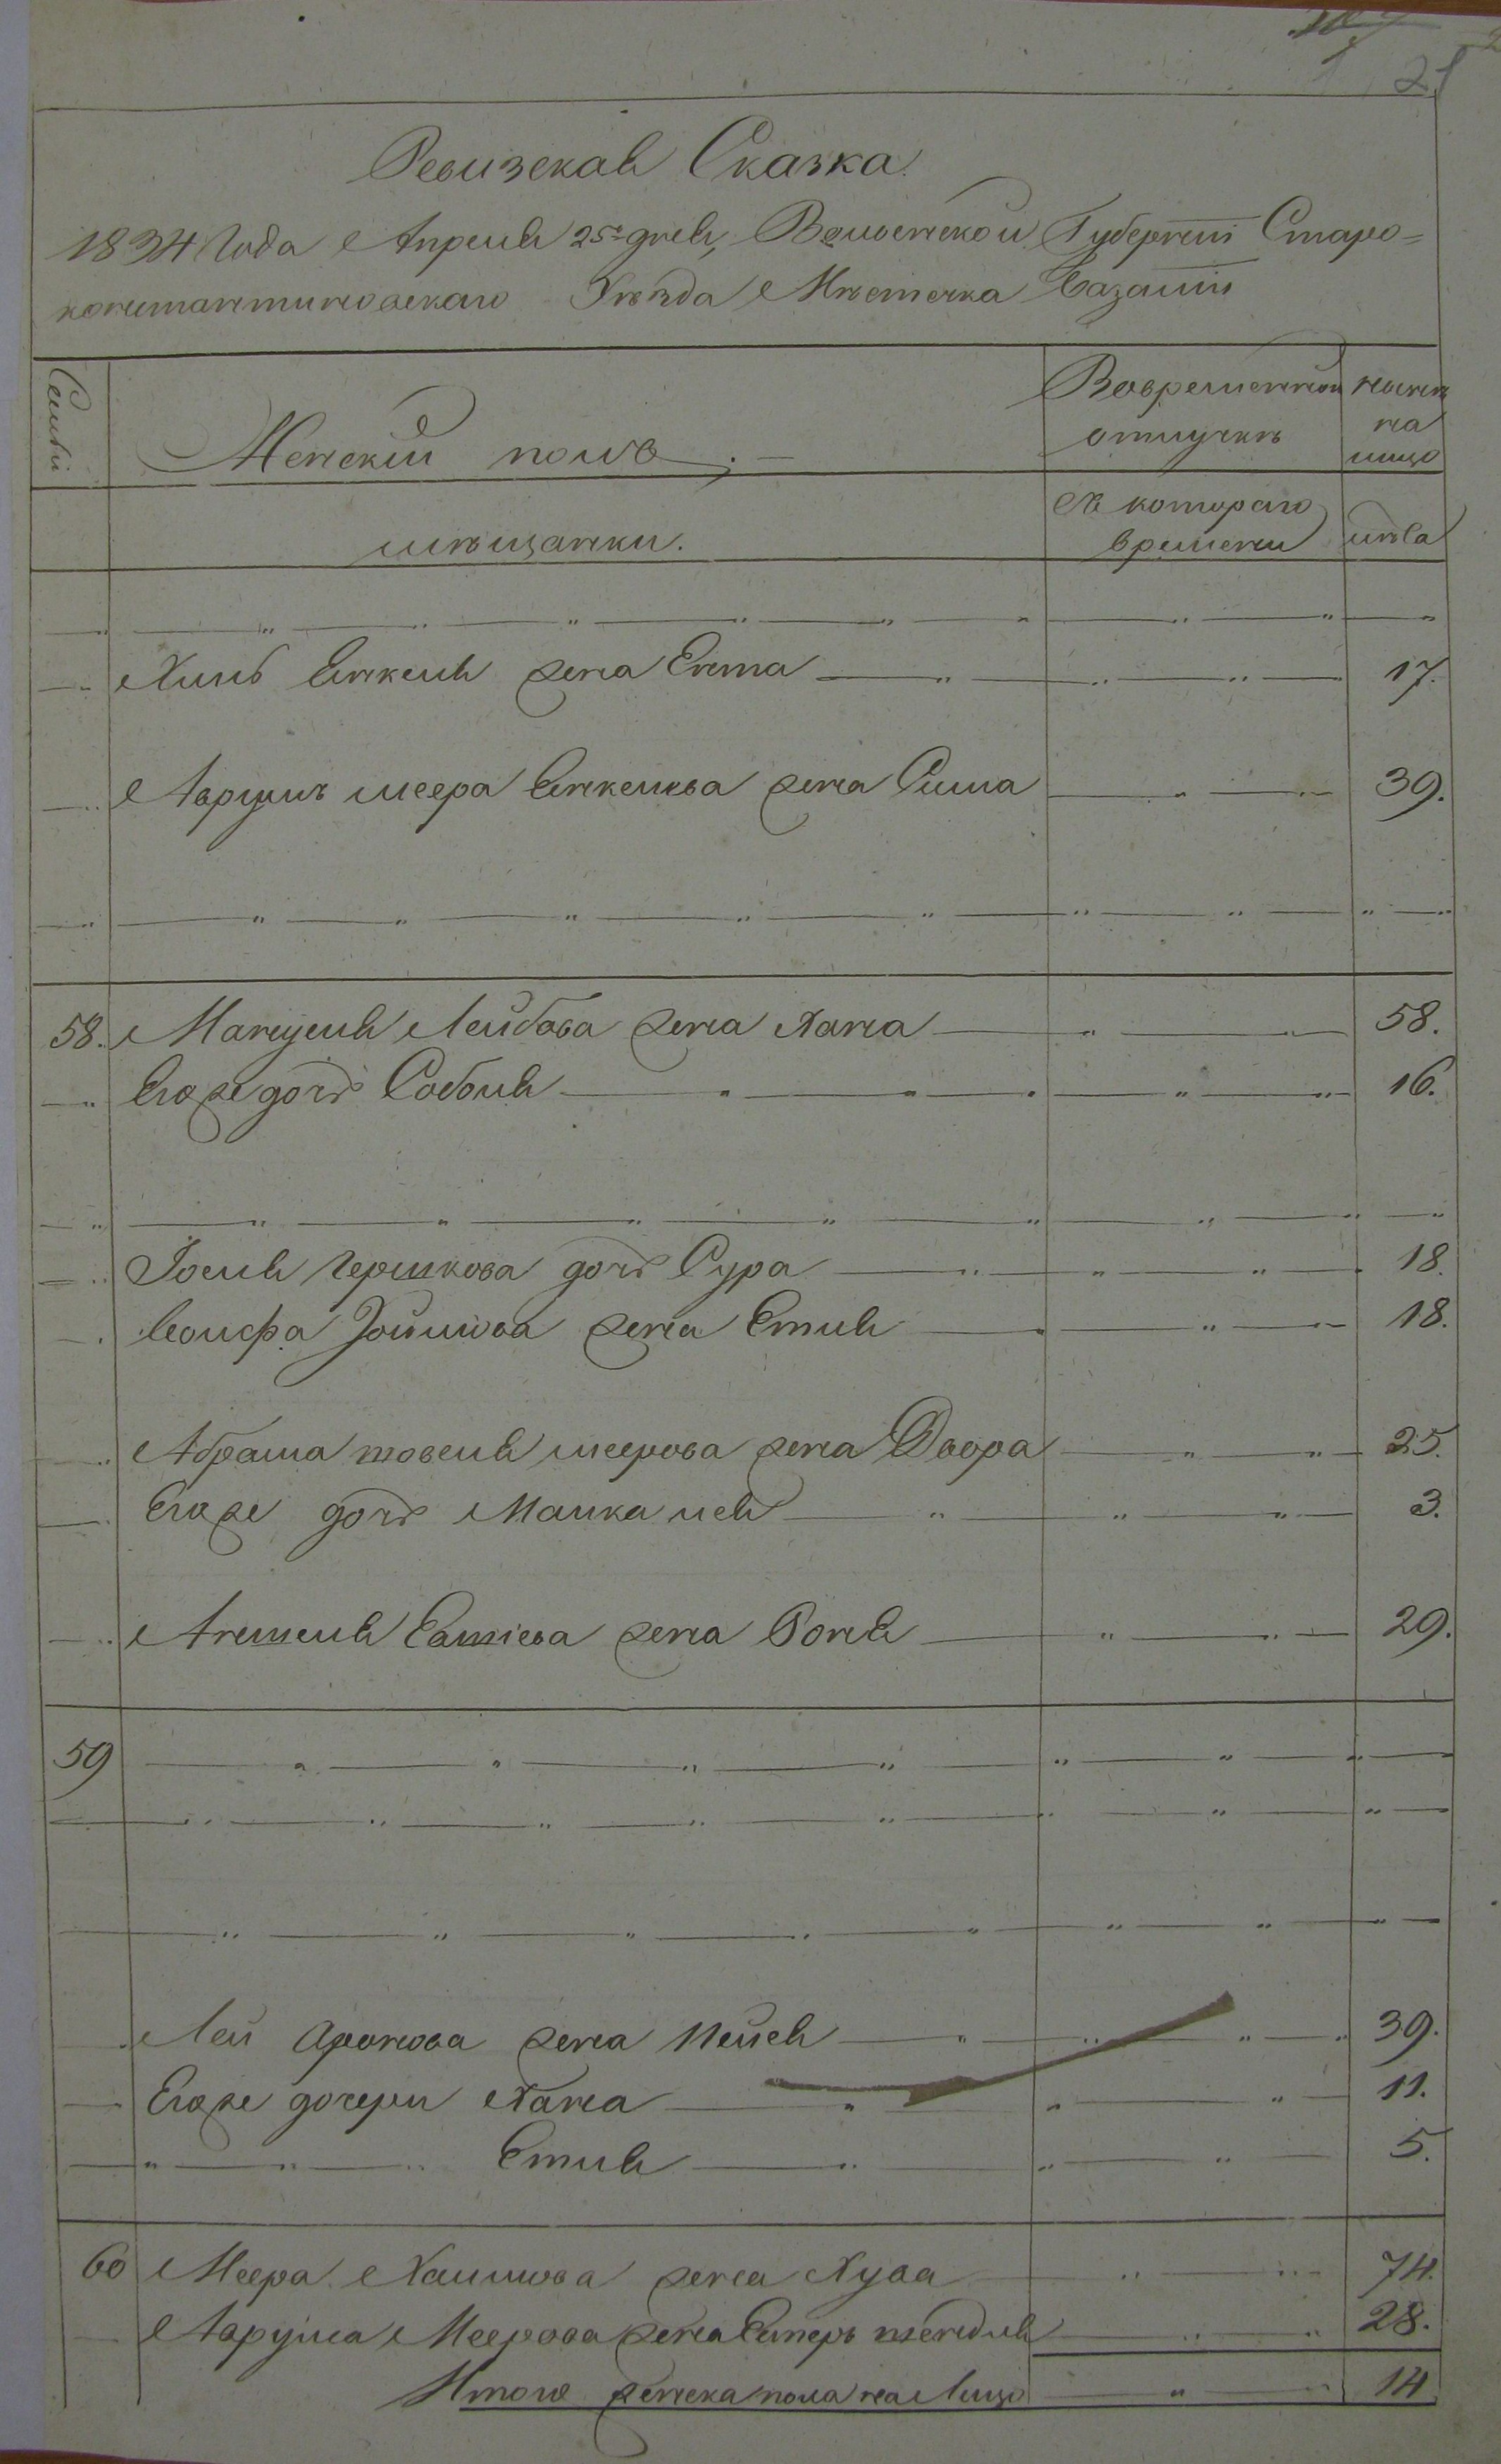 21
Ревизская Сказка.
1834 Года Апреля 25го дня, Волынской Губернии Старо=
константиновского Уезда Местечка Базалии
Семьи
Женский полъ.
Вовременной отлучкѣ
нынѣ на лицо
мѣщанки.
Съ котораго времени
лѣта
Хиль Янкеля жена Ента 17.
Авруль меера Янкелева жена Сима 39.
58. Мануеля Лейбова жена Хана 58.
Его же дочь Собля 16.
Іосля Гершкова дочь Сура 18.
Іосифа Іойлова жена Етля 18.
Абрама товеля меерова жена Двора 25.
Его же дочь Малка лея 3.
Аншеля Евшiева жена Роня 29.
59
Лей Аронова жена Нейся 39.
Его же дочери Хана 11.
Етля 5.
60 Меера Хаимова жена Хува 74.
Аврума Меерова жена Естеръ шендля 28.
Итого женска пола на Лицо 14